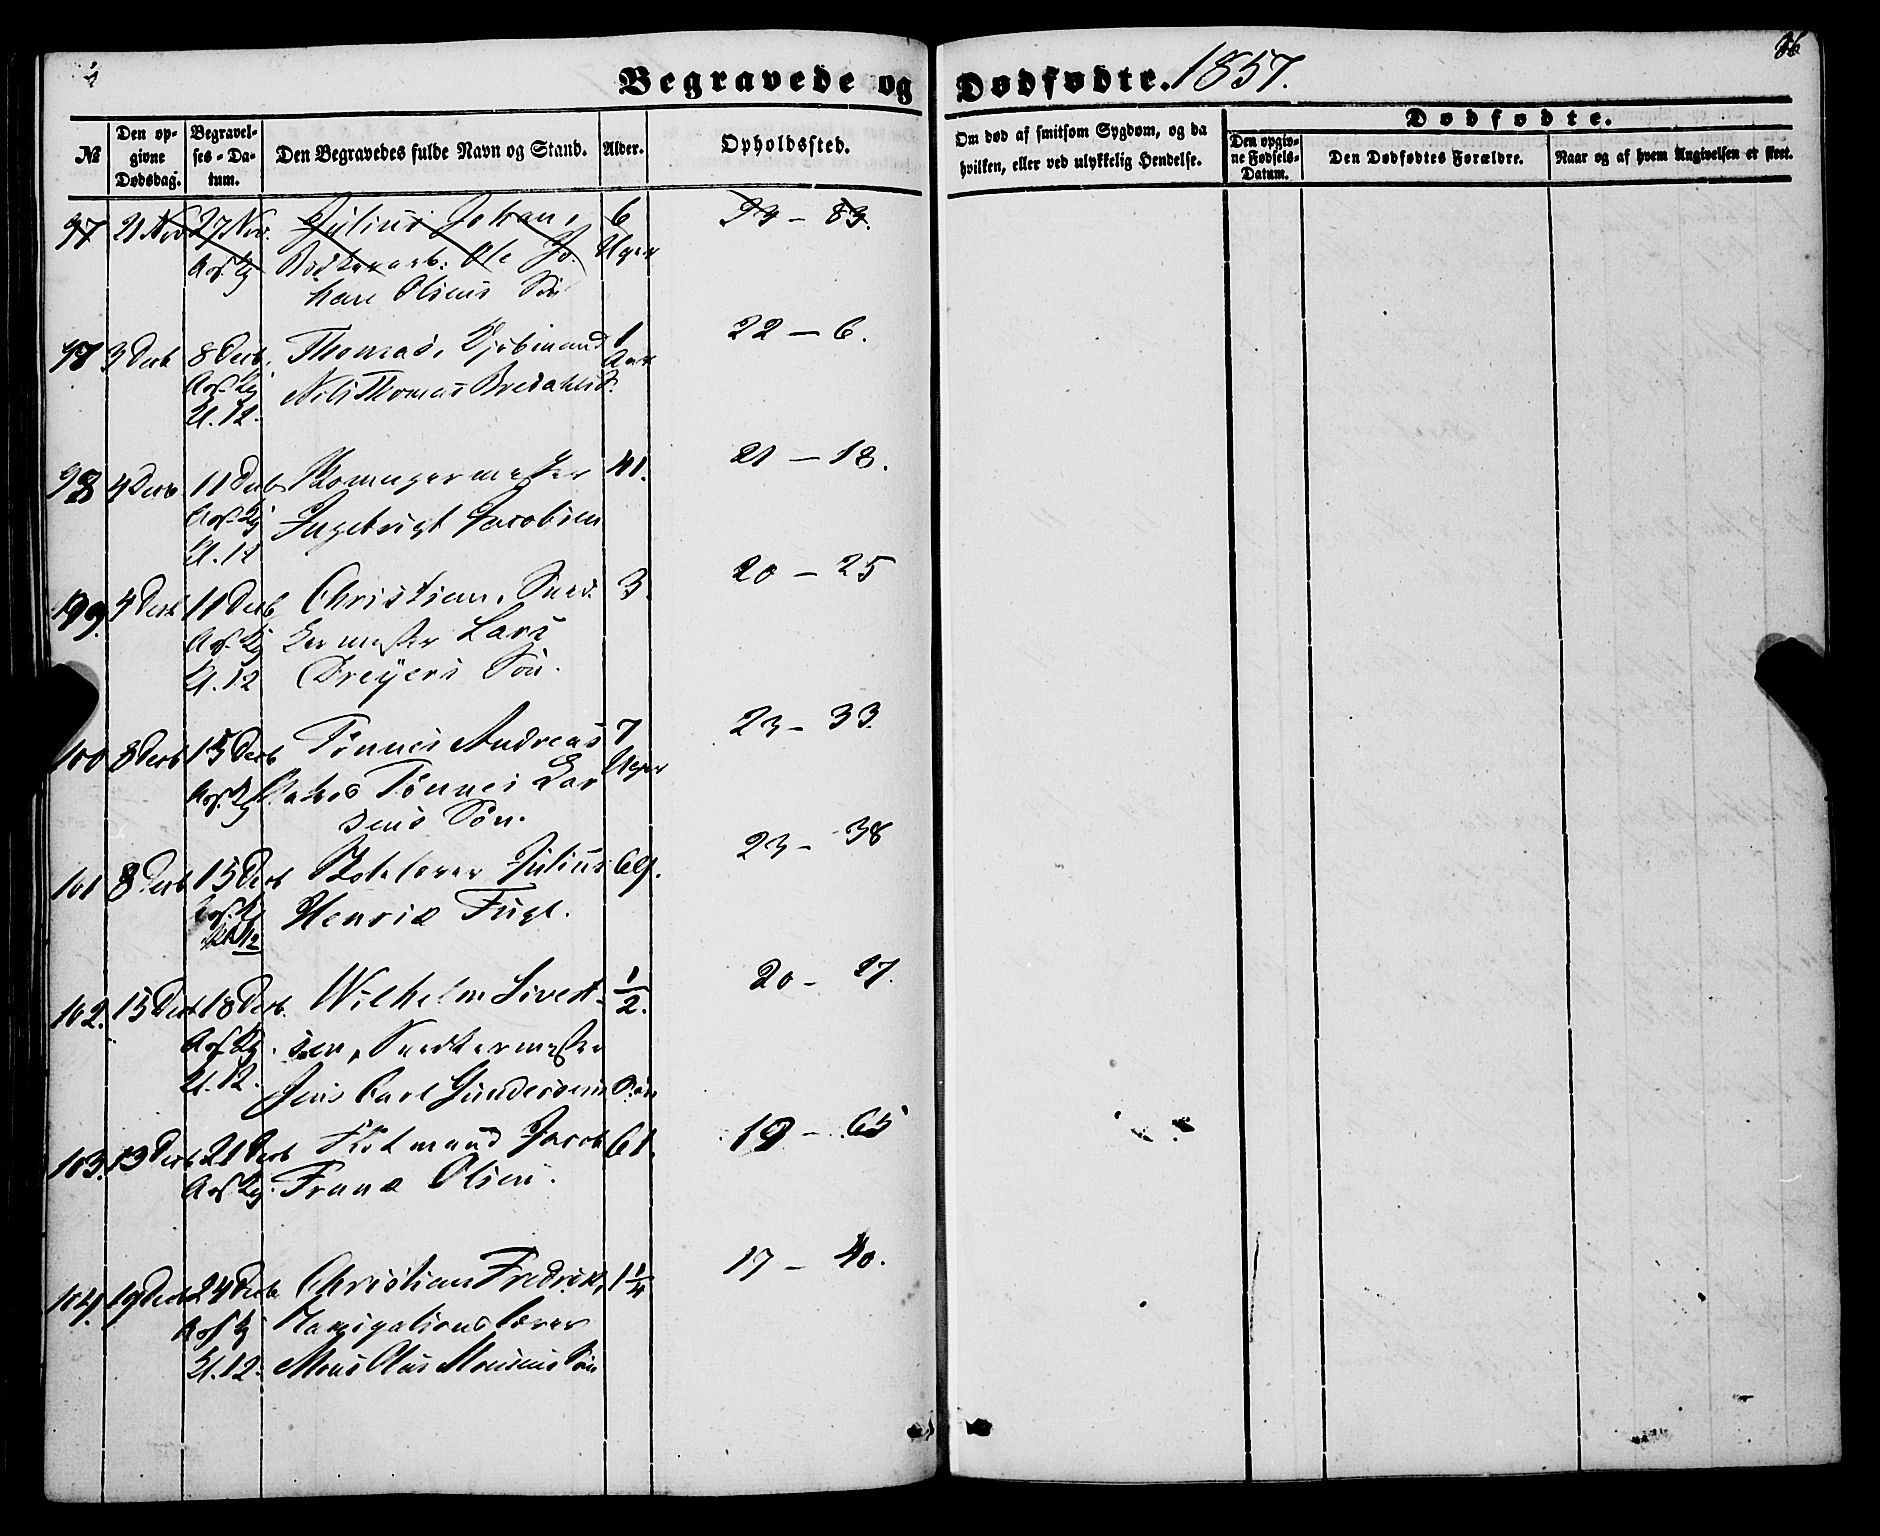 Begravede og Dødfødte. 1857.
86
№
Den opgivne Dødsdag.
Begravelses-Datum.
Den Begravedes fulde Navn og Stand.
Alder.
Opholdssted.
Om død af smitsom Sygdom, og da hvilken, eller ved ulykkelig Hendelse.
Dødfødte.
Den opgivne Fødsels-Datum.
Den Dødfødtes Forældre.
Naar og af hvem Angivelsen er skeet.
97 21 Nov 27 Nov. Julius Johan, 6
Ole Jo- Uger
han Olsens Søn
97 3 Decb 8 Decb. Thomas, 1
Nils Thomas Bredahls S. Aar
Kl. 12.
22 – 6.
98 4 Decb 11 Decb 41.
Ingebrigt Jacobsen
21 – 18.
99. 4 Decb 11 Decb Christian, Sned- 3.
kermester Lars
Kl. 12 Dreyers Søn.
20 – 25
100 8 Decb 15 Decb Tønnes Andreas 7
Tønnes Lar Uger
sens Søn.
23 – 33.
101 8 Decb 15 Decb Julius 69.
Henrik Fugl.
23 – 38
102. 15 Decb 18 Decb. Wilhelm Sivert- 1/2.
sen, Snedkermester
Kl. 12. Jens Carl Gundersens Søn
20 – 27.
103. 13 Decb 21 Decb Jacob 61.
Franz Olsen.
19 – 65
104. 19 Decb 24 Decb Christian Fredrik, 1 1/4
Navigationslærer
Kl. 12. Mons Olus Monsens Søn
17 – 40.